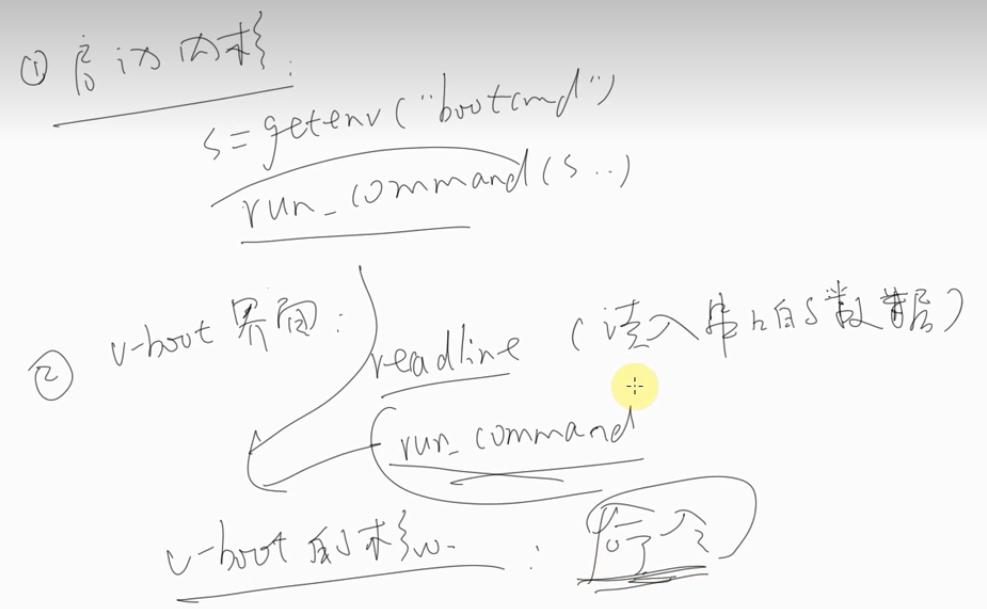 ① 启动内核:
s=getenv("bootcmd")
run_command(s..)
② u-boot 界面:
readline (读入串口的数据)
run_command
u-boot 的核心: 命令